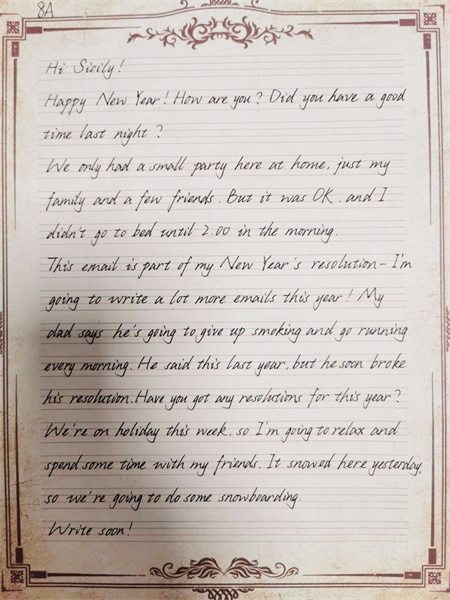 8A
Hi Sicily!
Happy New Year! How are you? Did you have a good
time last night?
We only had a small party here at home, just my
family and a few friends. But it was OK, and I
didn't go to bed until 2.00 in the morning.
This email is part of my New Year's resolution- I'm
going to write a lot more emails this year! My
dad says he's going to give up smoking and go running
every morning. He said this last year, but he soon broke
his resolution. Have you got any resolutions for this year?
We're on holiday this week, so I'm going to relax and
spend some time with my friends. It snowed here yesterday,
so we're going to do some snowboarding.
Write soon!